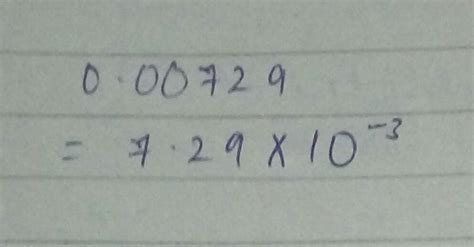 0.00729
= 7.29 × 10⁻³